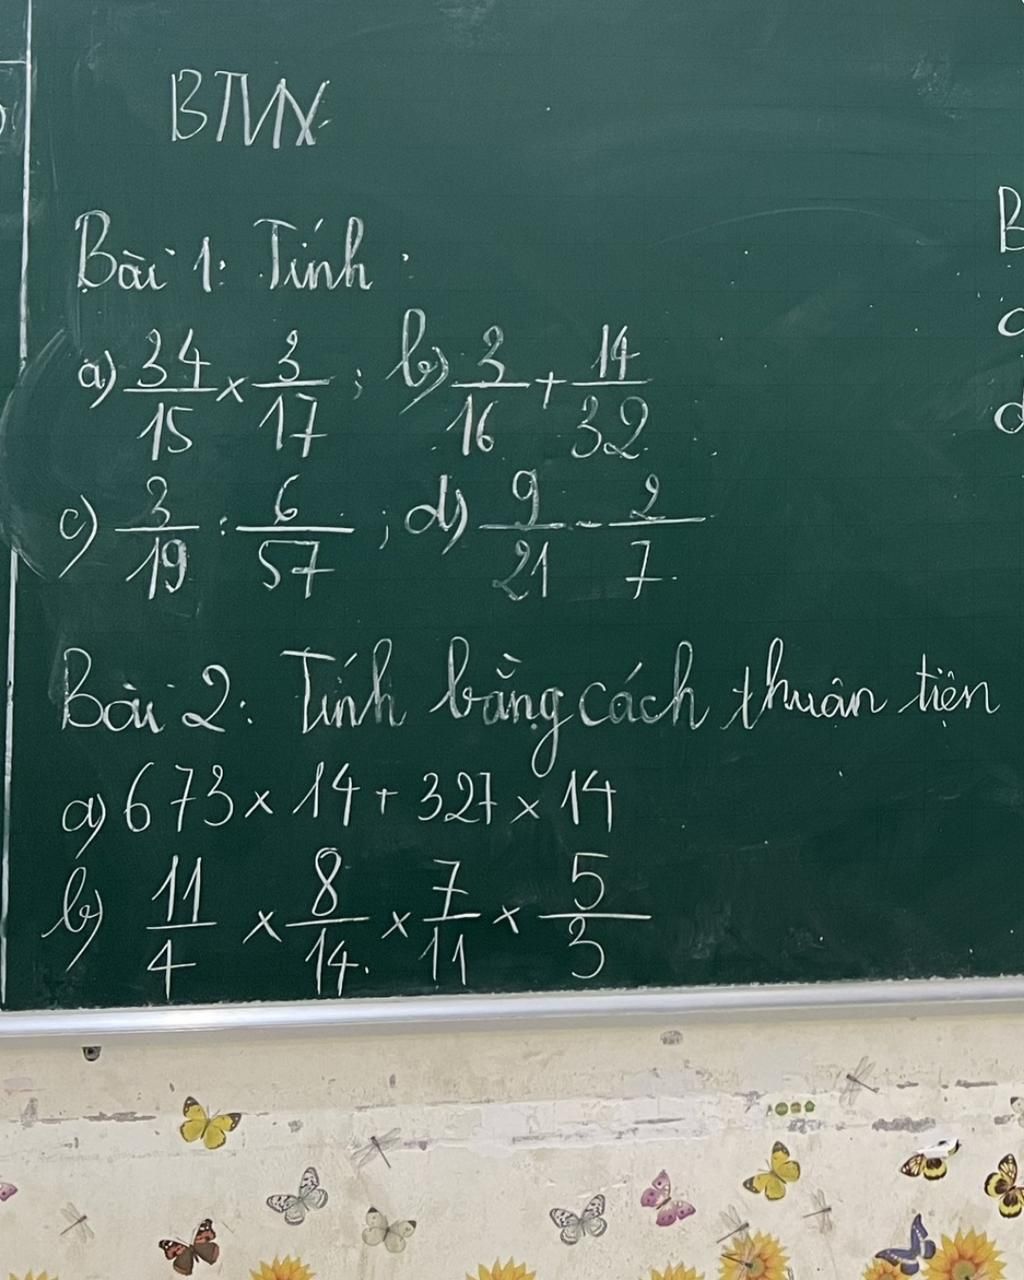 BTVN
Bài 1: Tính:
a) 34/15 × 3/17 ; b) 3/16 + 14/32
c) 3/19 : 6/57 ; d) 9/21 - 2/7
Bài 2: Tính bằng cách thuận tiện
a) 673 × 14 + 327 × 14
b) 11/4 × 8/14 × 7/11 × 5/3